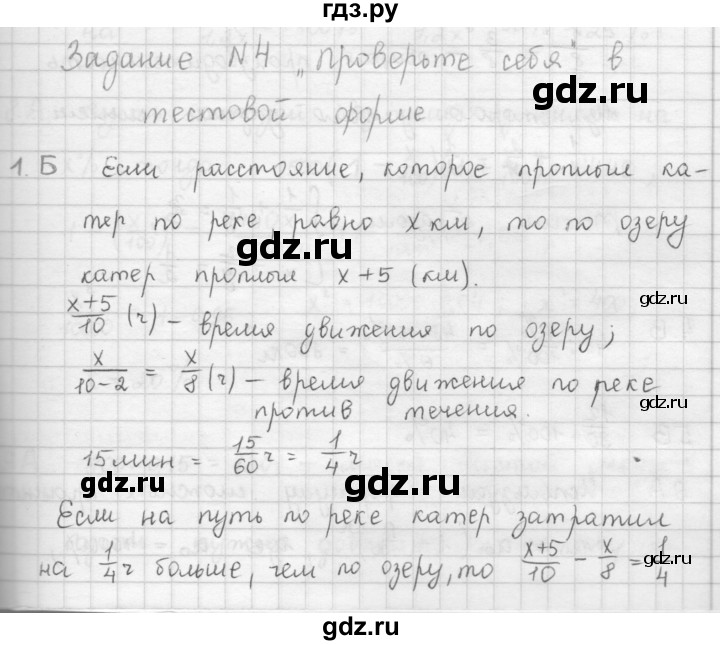 гдз.ру
Задание №4 „Проверьте себя" в
gdz.ru
тестовой форме
1. Б Если расстояние, которое проплыл ка-
тер по реке, равно x км, то по озеру
gdz.ru
катер проплыл x+5 (км).
gdz.ru
(x+5)/10 (ч) – время движения по озеру;
x/(10-2) = x/8 (ч) – время движения по реке
gdz.ru
против течения.
15мин = 15/60 ч = 1/4 ч
gdz.ru
gdz.ru
Если на путь по реке катер затратил
на 1/4 ч больше, чем по озеру, то (x+5)/10 - x/8 = 1/4
gdz.ru
gdz.ru